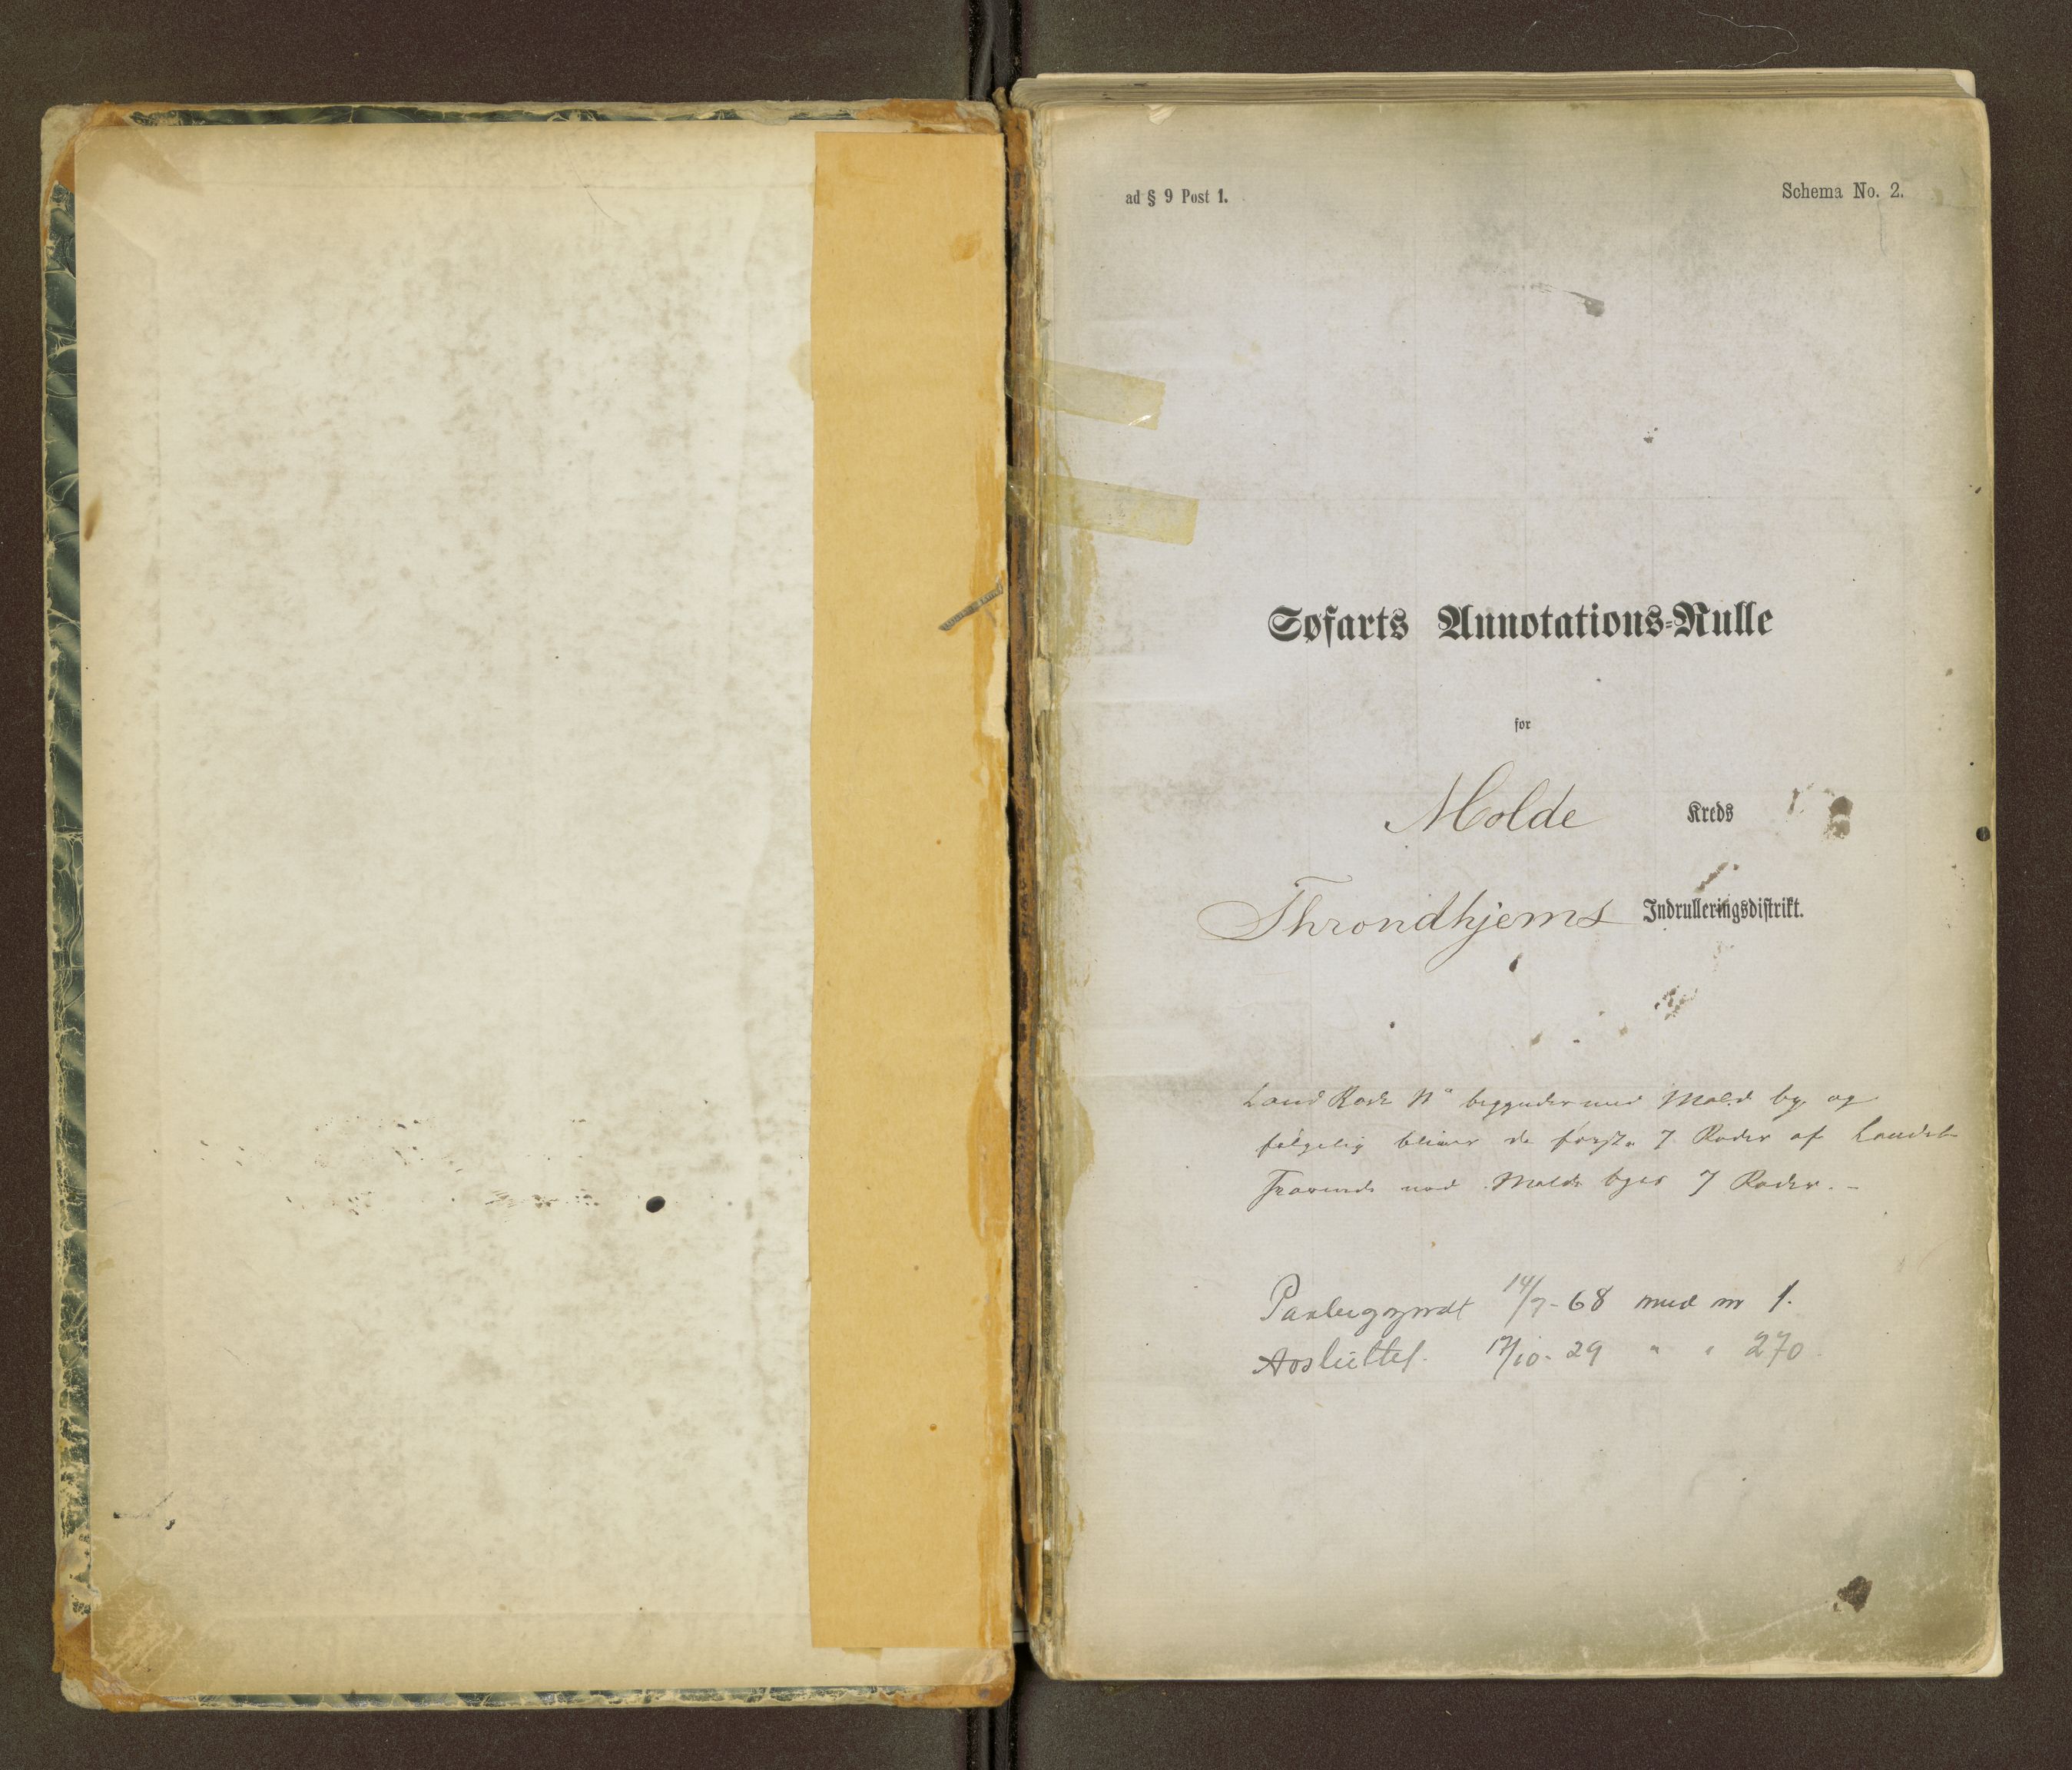 ad § 9 Post 1.
Schema No. 2.
Søfarts Annotations=Rulle
for
Molde Kreds
Throndhjems Indrulleringsdistrikt.
Land Rode No begynder med Molde by og
følgelig bliver de første 7 Roder af Landets
med Molde byes 7 Roder. -
Paabegyndt 14/7-68 med nr 1.
Avsluttet. 17/10-29 " " 270.